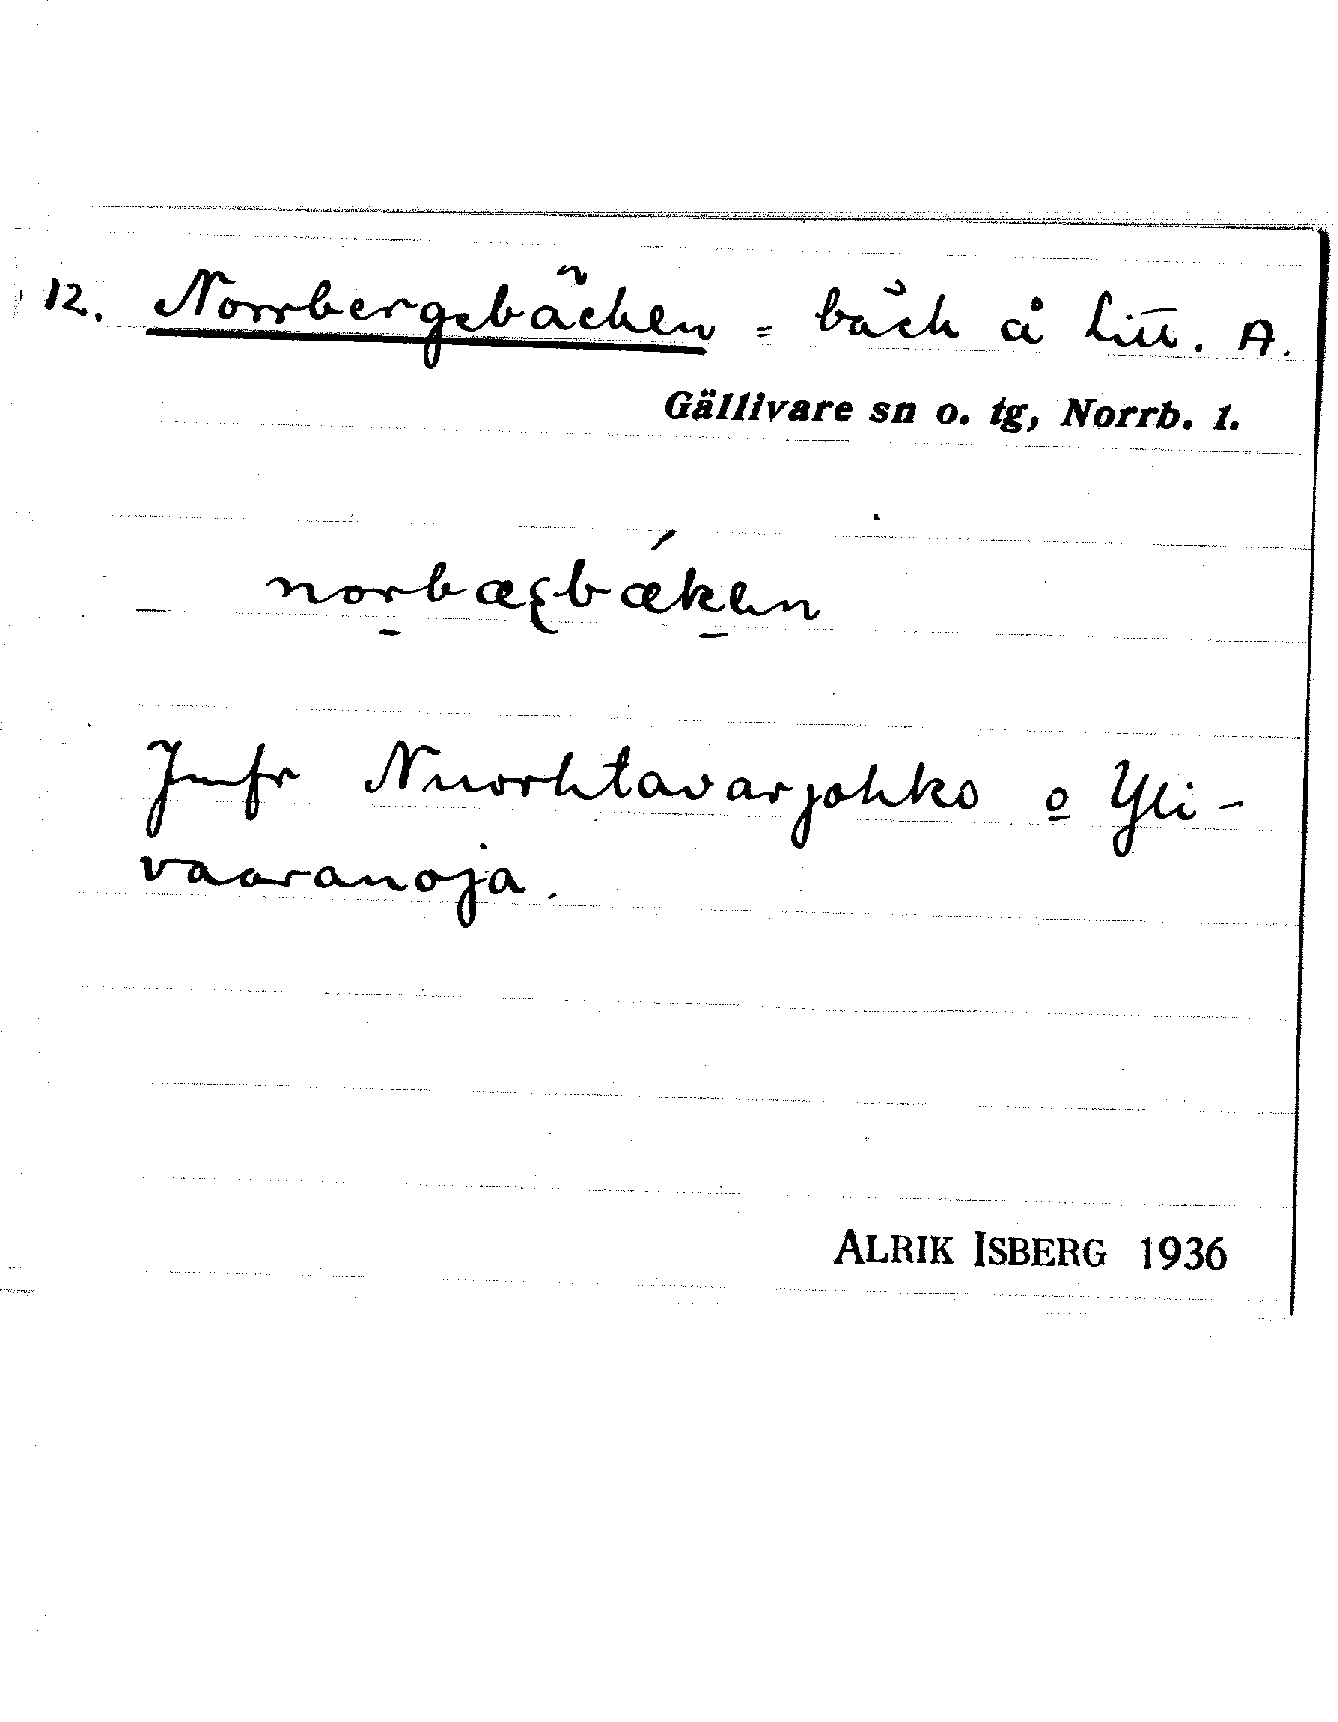 12. Norrbergsbäcken = bäck å Litt. A.
Gällivare sn o. tg, Norrb. l.
norbæʂbǽken
Jmfr Nuorhtavarjohko o Yli-
vaaranoja.
ALRIK ISBERG 1936